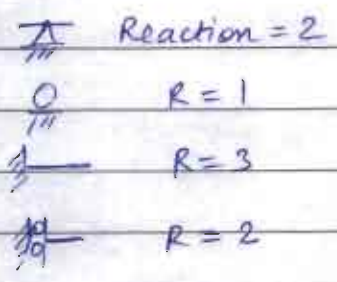 Reaction = 2
R = 1
R = 3
R = 2